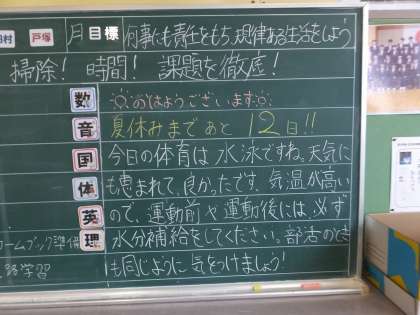 村 戸塚
月目標 何事にも責任をもち、規律ある生活をしよう
掃除! 時間! 課題を徹底!
数 おはようございます
音 夏休みまであと12日!!
国 今日の体育は水泳ですね。天気に
体 も恵まれて、良かったです。気温が高い
英 ので、運動前や運動後には、必ず
理 水分補給をしてください。部活のとき
も同じように気をつけましょう!
ームブック準備
学習